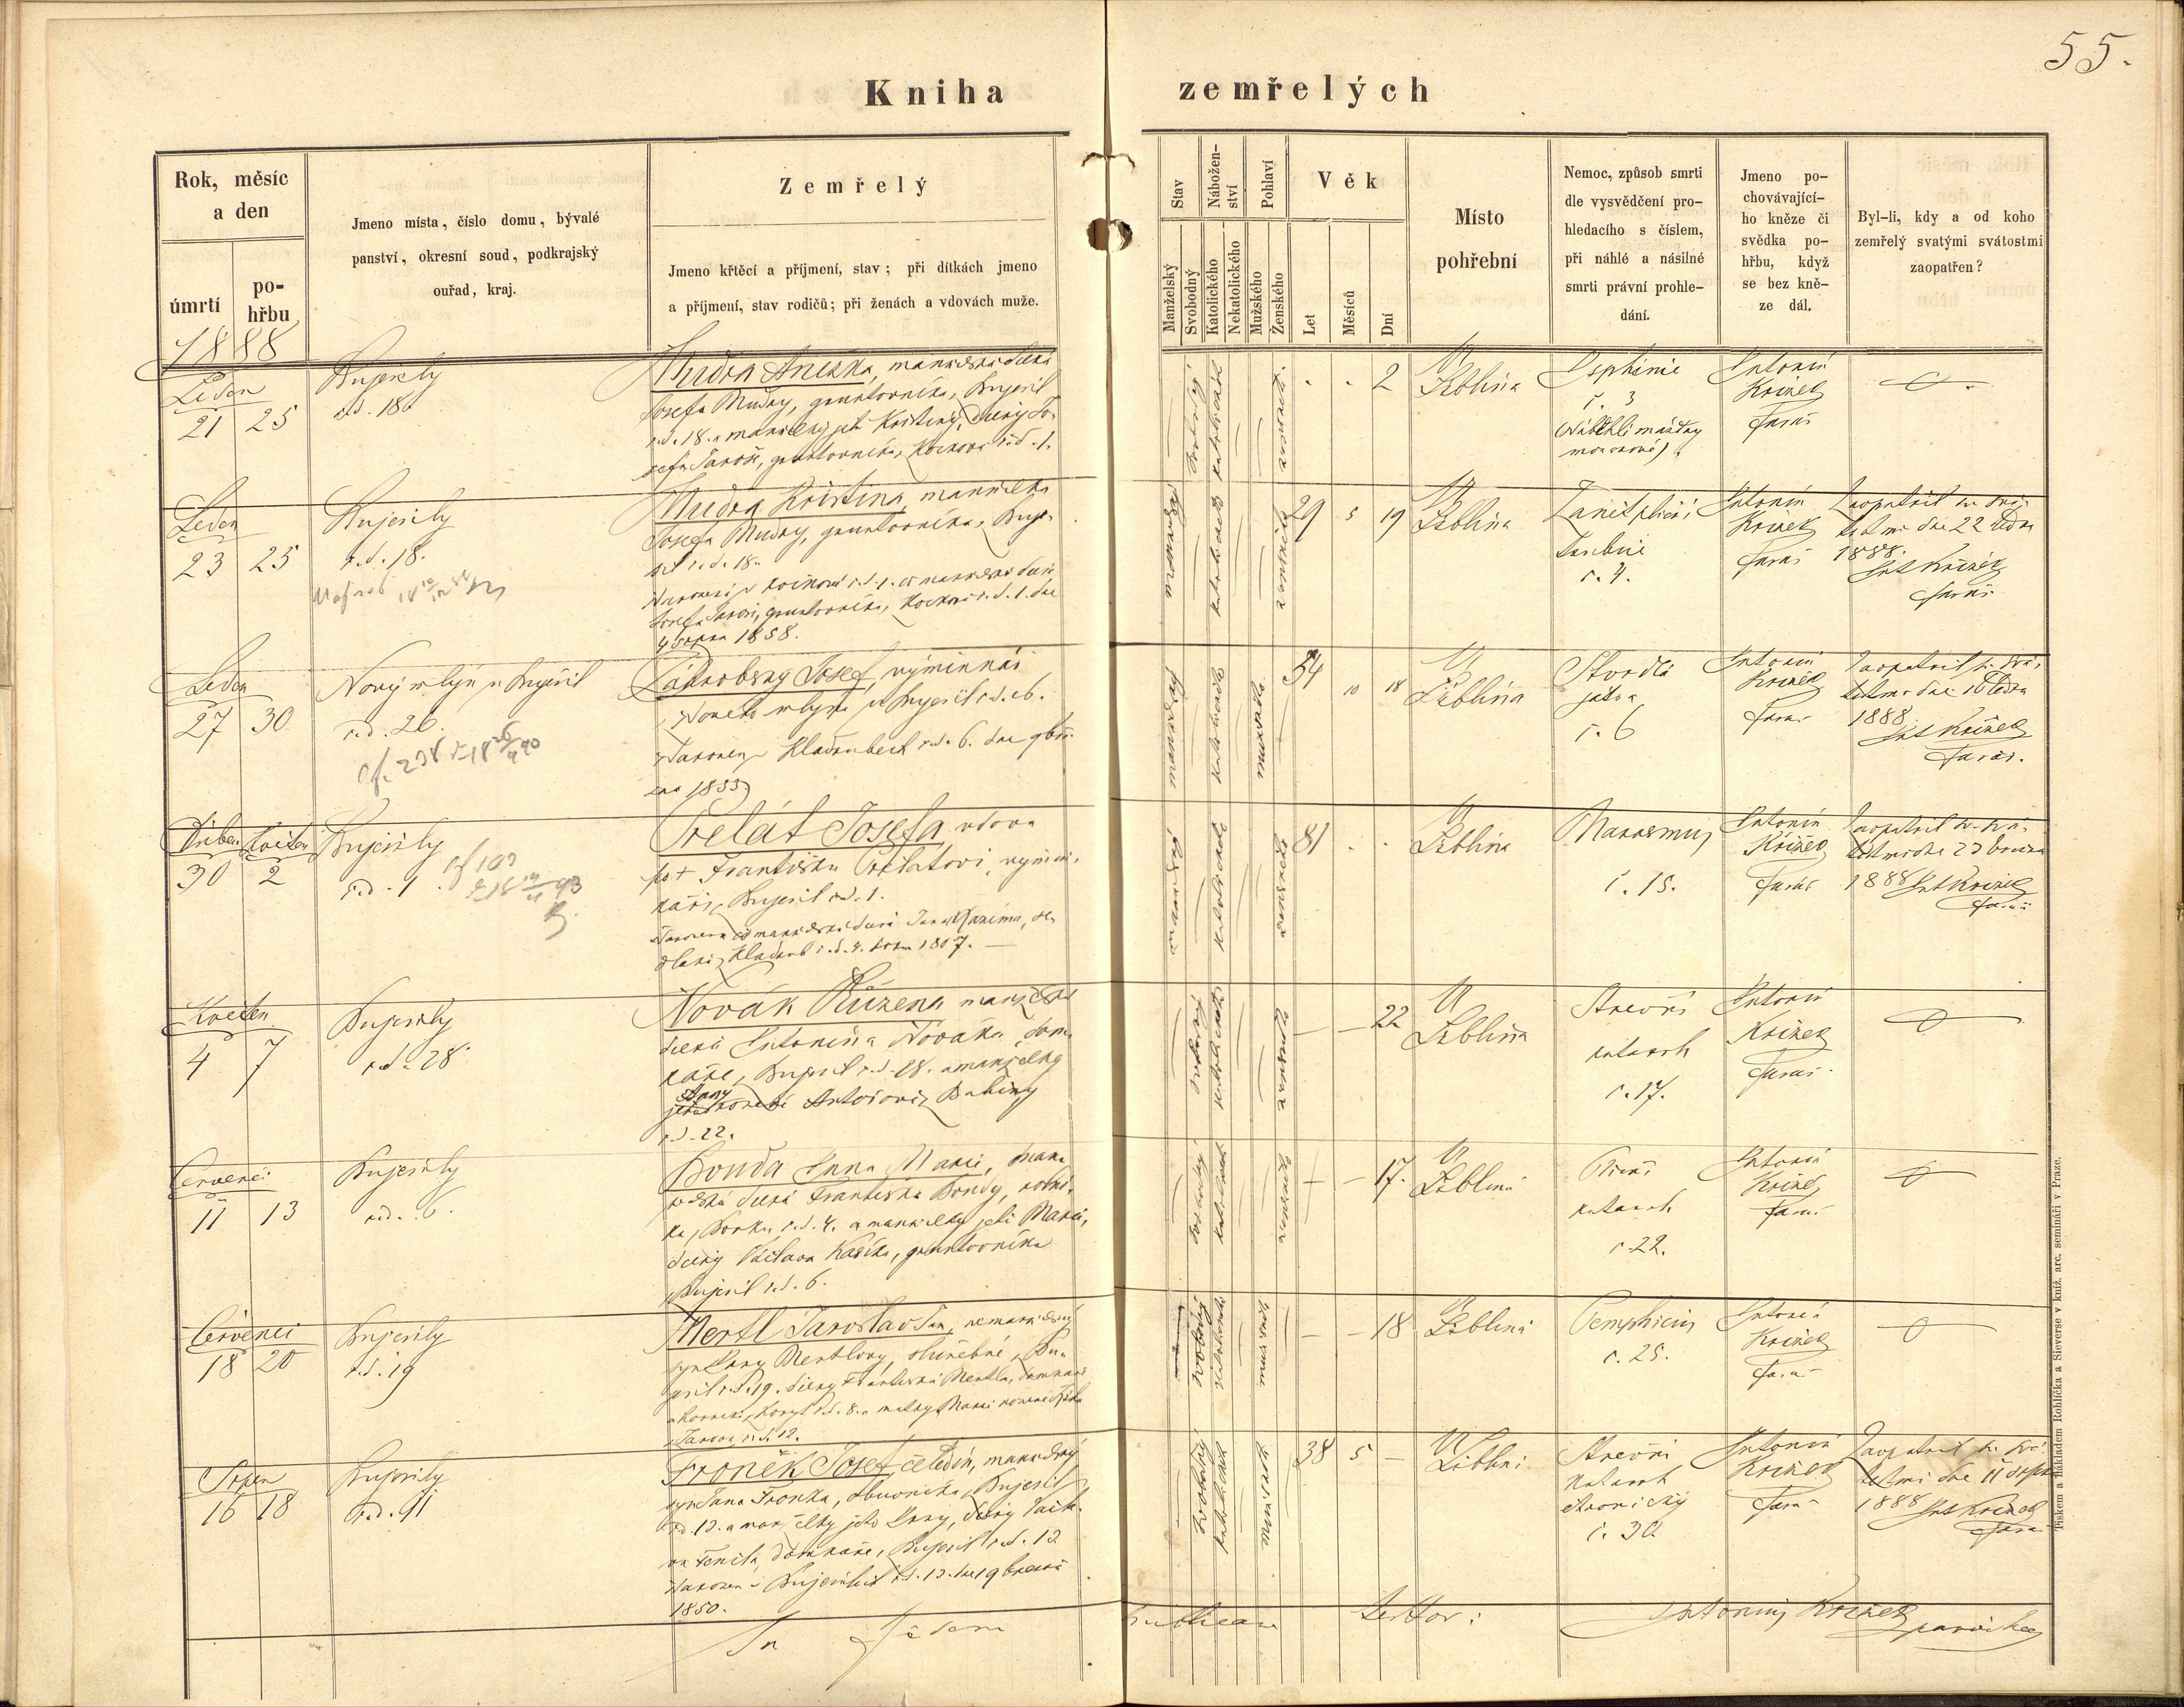 55.
Kniha zemřelých
Rok, měsíc
a den
úmrtí
po-
hřbu
Jmeno místa, číslo domu, bývalé
panství, okresní soud, podkrajský
ouřad, kraj.
Zemřelý
Jmeno křtěcí a příjmení, stav; při dítkách jmeno
a příjmení, stav rodičů; při ženách a vdovách muže.
Stav
Manželský
Svobodný
Nábožen-
ství
Katolického
Nekatolického
Pohlaví
Mužského
Ženského
Věk
Let
Měsíců
Dní
Místo
pohřební
Nemoc, způsob smrti
dle vysvědčení pro-
hledacího s číslem,
při náhlé a násilné
smrti právní prohle-
dání.
Jmeno po-
chovávající-
ho kněze či
svědka po-
hřbu, když
se bez kně-
ze dál.
Byl-li, kdy a od koho
zemřelý svatými svátostmi
zaopatřen?
1888
Leden
21 25
Bujesily
č.d. 18
Mudra Anežka, manželská dcera
Josefa Mudry, gruntovníka, Bujesil
č.d. 18. a manželky jeho Kristiny, dcery Jo-
sefa Jaroše, gruntovníka, č.d. 1.
svobodný
katolické
ženské
2
Liblína
č. 3
Antonín
Křížek
farář
Leden
23 25
Bujesily
č.d. 18.
Mudra Kristina, manželka
Josefa Mudry, gruntovníka, Buje-
sil č.d. 18.
Josefa Jaroše, gruntovníka, č.d. 1. dne
4 srpna 1858.
manželský
katolické
ženské
29 5 19
Liblína
Zánět plic
č. 4.
Antonín
Křížek
farář
Zaopatřil sv. svá-
tostmi dne 22 ledna
1888.
Ant Křížek
farář
Leden
27 30
Nový mlýn u Bujesil
č.d. 26.
Josef, výminkář
z Nového mlýna u Bujesil č.d. 26.
č.d. 6. dne
1833
manželský
katolické
mužské
54 10 18
Liblína
Stvrdlá
játra
č. 6
Antonín
Křížek
farář
Zaopatřil sv. svá-
tostmi dne 16 ledna
1888
Ant Křížek
farář.
Duben Květen
30 2
Bujesily
č.d. 1.
Prelát Josefa, vdova
po † Františku Prelátovi, výmin-
káři, Bujesil č.d. 1.
č.d. 4. roku 1807.
manželský
katolické
ženské
81
Liblína
Marasmus
č. 15.
Antonín
Křížek
farář
Zaopatřil sv. svá-
tostmi dne 23 března
1888 Ant Křížek
farář
Květen
4 7
Bujesily
č.d. 28.
Novák Růžena manželská
dcera Antonína Nováka, dom-
káře, Bujesil č.d. 28. a manželky
č.d. 22.
svobodný
katolické
ženské
22
Liblína
Střevní
katarrh
č. 17.
Antonín
Křížek
farář
Červenec
11 13
Bujesily
č.d. 6.
Bouda Anna Marie, man-
želská dcera Františka Boudy, rolní-
ka, č.d. 4. a manželky jeho Marie,
dcery Václava Kasíka, gruntovníka
Bujesil č.d. 6.
svobodný
katolické
ženské
17.
Liblína
Střevní
katarrh
č. 22.
Antonín
Křížek
farář
Červenec
18 20
Bujesily
č.d. 19
Mertl Jaroslav Jan, nemanželský
syn Anny Mertlovy, služebné, Bu-
jesil č.d. 19. dcery Františka Mertla, domkáře
č.d. 8. a matky Marie
č.d. 12.
svobodný
katolické
mužské
18
Liblína
Pemphicus
č. 25.
Antonín
Křížek
farář
Srpen
16 18
Bujesily
č.d. 11
Froněk Josef, čeledín, manželský
syn Jana Froňka, obuvníka, Bujesil
č.d. 12. a manželky jeho Anny, dcery Václa-
va domkáře, Bujesil č.d. 12
Narozen v Bujesilech č.d. 12. dne 19 března
1850.
svobodný
katolické
mužské
38 5
Liblín
Střevní
katarrh
chronický
č. 30.
Antonín
Křížek
farář
Zaopatřil sv. svá-
tostmi dne 11 srpna
1888 Ant Křížek
farář
In fidem publicam testor: Antonius Křížek
parochus
Tiskem a nákladem Rohlíčka a Sieverse v kníž. arc. semináři v Praze.